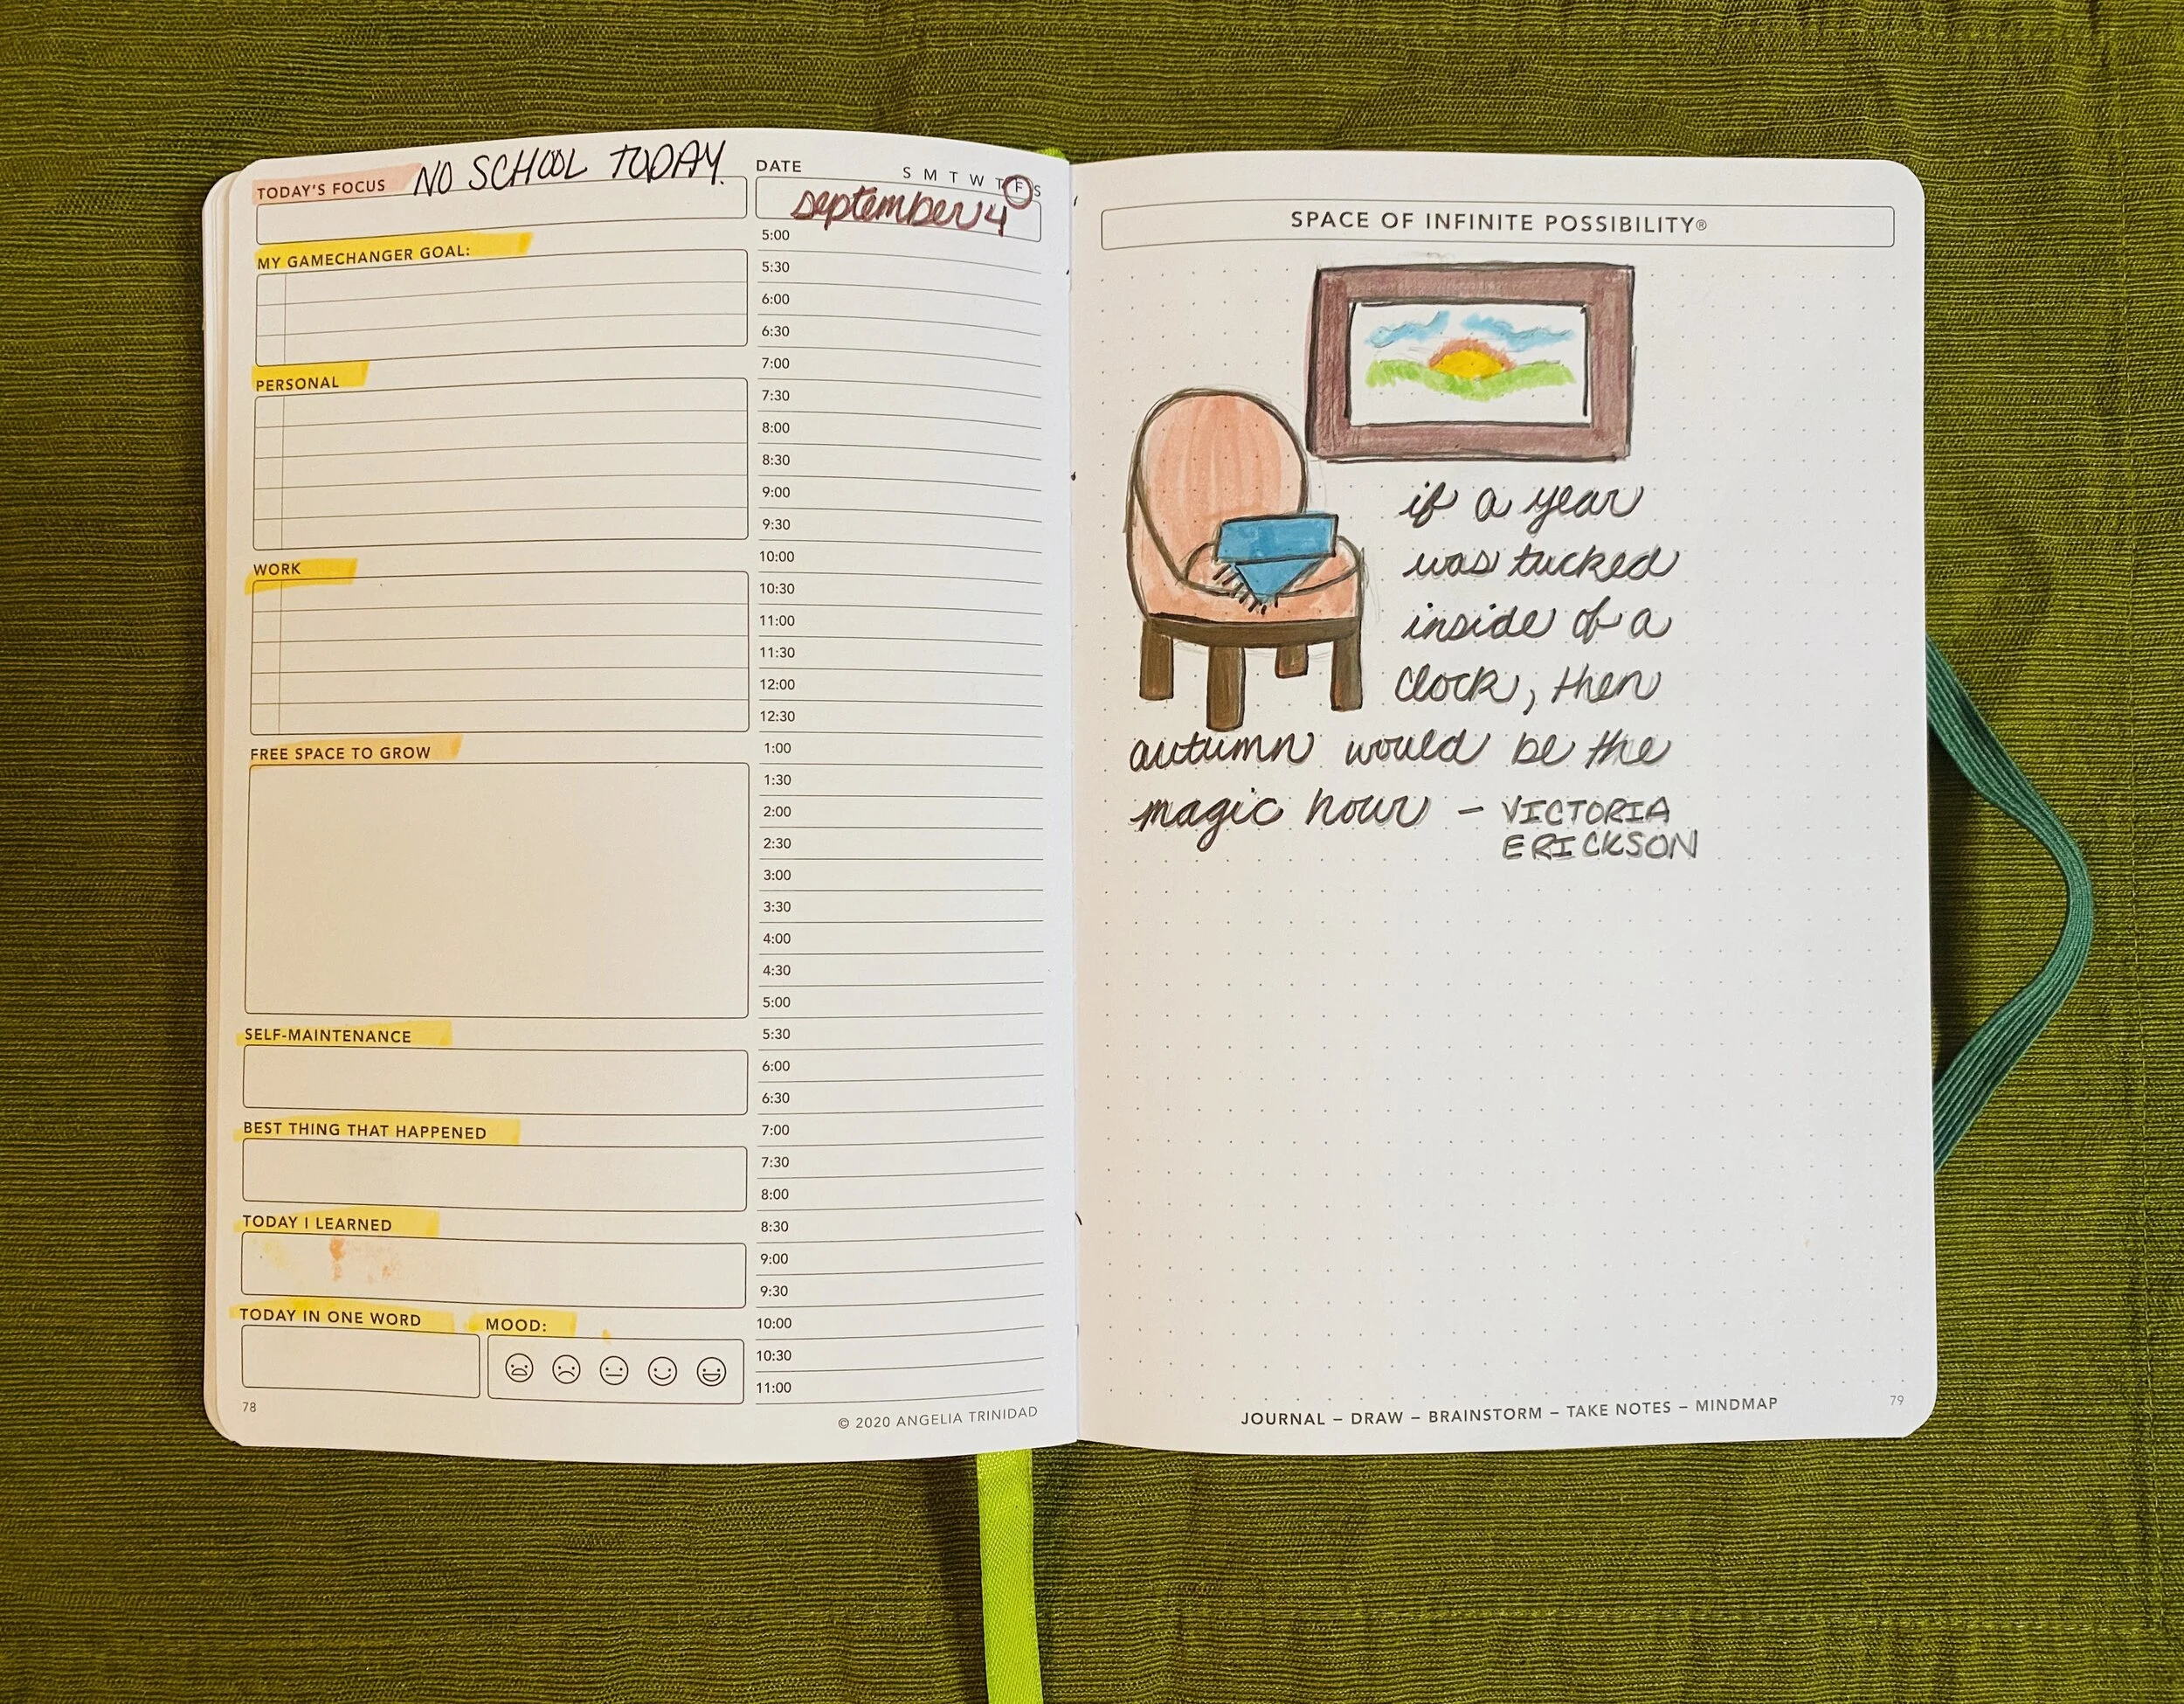 TODAY'S FOCUS NO SCHOOL TODAY.
MY GAMECHANGER GOAL:
PERSONAL
WORK
FREE SPACE TO GROW
SELF-MAINTENANCE
BEST THING THAT HAPPENED
TODAY I LEARNED
TODAY IN ONE WORD
MOOD:
78
DATE
S M T W T F S
september 4
5:00
5:30
6:00
6:30
7:00
7:30
8:00
8:30
9:00
9:30
10:00
10:30
11:00
11:30
12:00
12:30
1:00
1:30
2:00
2:30
3:00
3:30
4:00
4:30
5:00
5:30
6:00
6:30
7:00
7:30
8:00
8:30
9:00
9:30
10:00
10:30
11:00
© 2020 ANGELIA TRINIDAD
SPACE OF INFINITE POSSIBILITY®
if a year
was tucked
inside of a
clock, then
autumn would be the
magic hour – VICTORIA
ERICKSON
JOURNAL – DRAW – BRAINSTORM – TAKE NOTES – MINDMAP
79